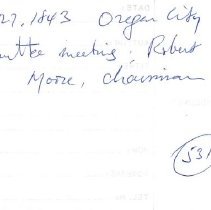 27, 1843 Oregon City
mittee meeting; Robert
Moore, Chairman
531